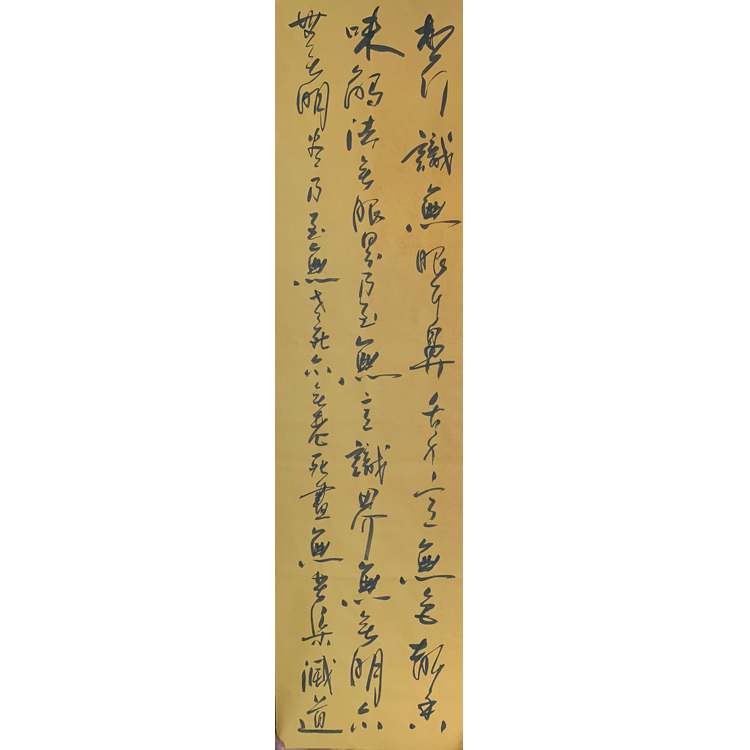 想行識無眼耳鼻舌身意無色聲香
味觸法无眼界乃至無意識界無无明亦
無无明尽乃至無老死亦无老死盡無苦集滅道